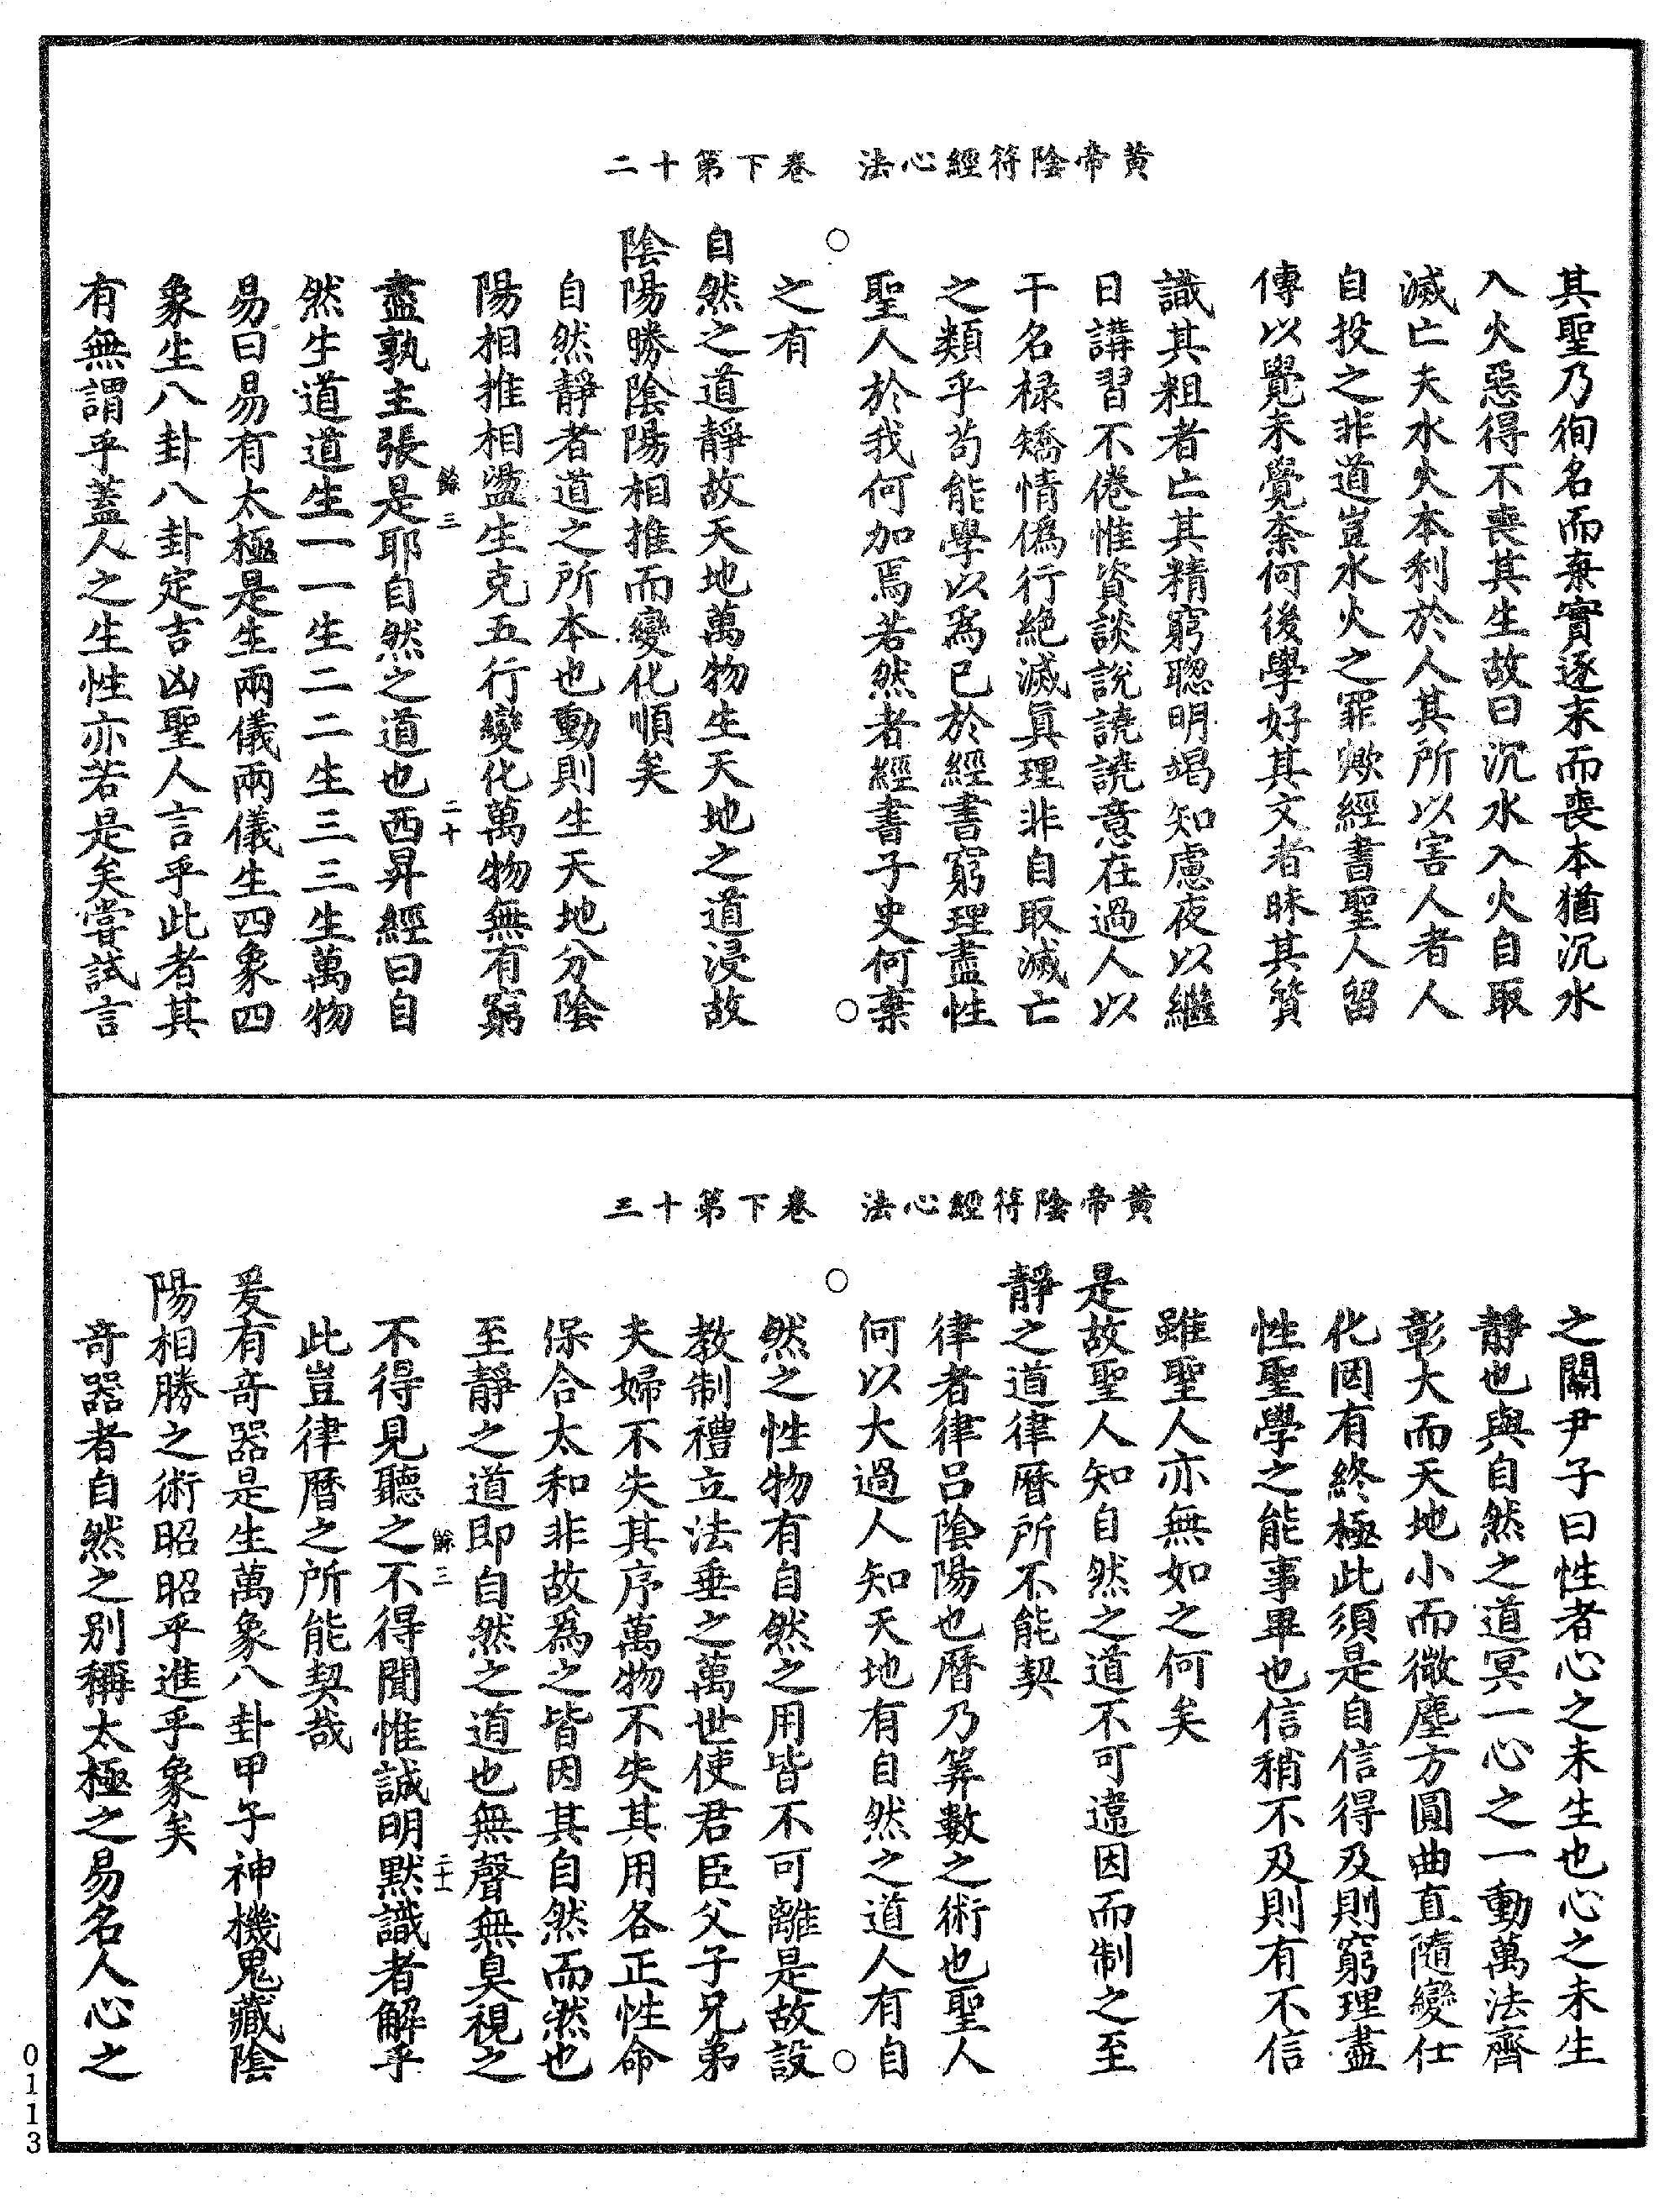 黄帝陰符經心法　卷下第十二
其聖乃徇名而棄實逐末而喪本猶沉水
入火惡得不喪其生故曰沉水入火自取
滅亡夫水火本利於人其所以害人者人
自投之非道豈水火之罪歟經書聖人留
傳以覺未覺柰何後學好其文者昧其質
識其粗者亡其精窮聰明竭知慮夜以繼
日講習不倦惟資談說譊譊意在過人以
干名祿矯情僞行絕滅眞理非自取滅亡
之類乎茍能學以爲已於經書窮理盡性
聖人於我何加焉若然者經書子史何棄
之有
自然之道靜故天地萬物生天地之道浸故
陰陽勝陰陽相推而變化順矣
自然靜者道之所本也動則生天地分陰
陽相推相盪生克五行變化萬物無有窮
餘三　二十
盡孰主張是耶自然之道也西昇經曰自
然生道道生一一生二二生三三生萬物
易曰易有太極是生兩儀兩儀生四象四
象生八卦八卦定吉凶聖人言乎此者其
有無謂乎蓋人之生性亦若是矣嘗試言
黄帝陰符經心法　卷下第十三
之關尹子曰性者心之未生也心之未生
靜也與自然之道冥一心之一動萬法齊
彰大而天地小而微塵方圓曲直隨變任
化罔有終極此須是自信得及則窮理盡
性聖學之能事畢也信稍不及則有不信
雖聖人亦無如之何矣
是故聖人知自然之道不可違因而制之至
靜之道律曆所不能契
律者律呂陰陽也曆乃筭數之術也聖人
何以大過人知天地有自然之道人有自
然之性物有自然之用皆不可離是故設
教制禮立法垂之萬世使君臣父子兄弟
夫婦不失其序萬物不失其用各正性命
保合太和非故爲之皆因其自然而然也
至靜之道即自然之道也無聲無臭視之
餘三　二十一
不得見聽之不得聞惟誠明默識者解乎
此豈律曆之所能契哉
爰有奇器是生萬象八卦甲子神機鬼藏陰
陽相勝之術昭昭乎進乎象矣
奇器者自然之別稱太極之易名人心之
0113